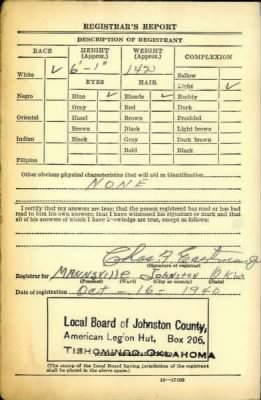 REGISTRAR'S REPORT
DESCRIPTION OF REGISTRANT
RACE HEIGHT (Approx.) WEIGHT (Approx.) COMPLEXION
White ✓ 6'-1" 142 Sallow
EYES HAIR Light ✓
Negro Blue ✓ Blonde ✓ Ruddy
Gray Red Dark
Oriental Hazel Brown Freckled
Brown Black Light brown
Indian Black Gray Dark brown
Bald Black
Filipino
Other obvious physical characteristics that will aid in identification
NONE
I certify that my answers are true; that the person registered has read or has had
read to him his own answers; that I have witnessed his signature or mark and that
all of his answers of which I have knowledge are true, except as follows:
(Signature of registrar)
Registrar for Mannsville Johnston Okla
(Precinct) (Ward) (City or county) (State)
Date of registration Oct - 16 - 1940
Local Board of Johnston County,
American Legion Hut, Box 206,
TISHOMINGO, OKLAHOMA
(The stamp of the Local Board having jurisdiction of the registrant
shall be placed in the above space.)
16-17105